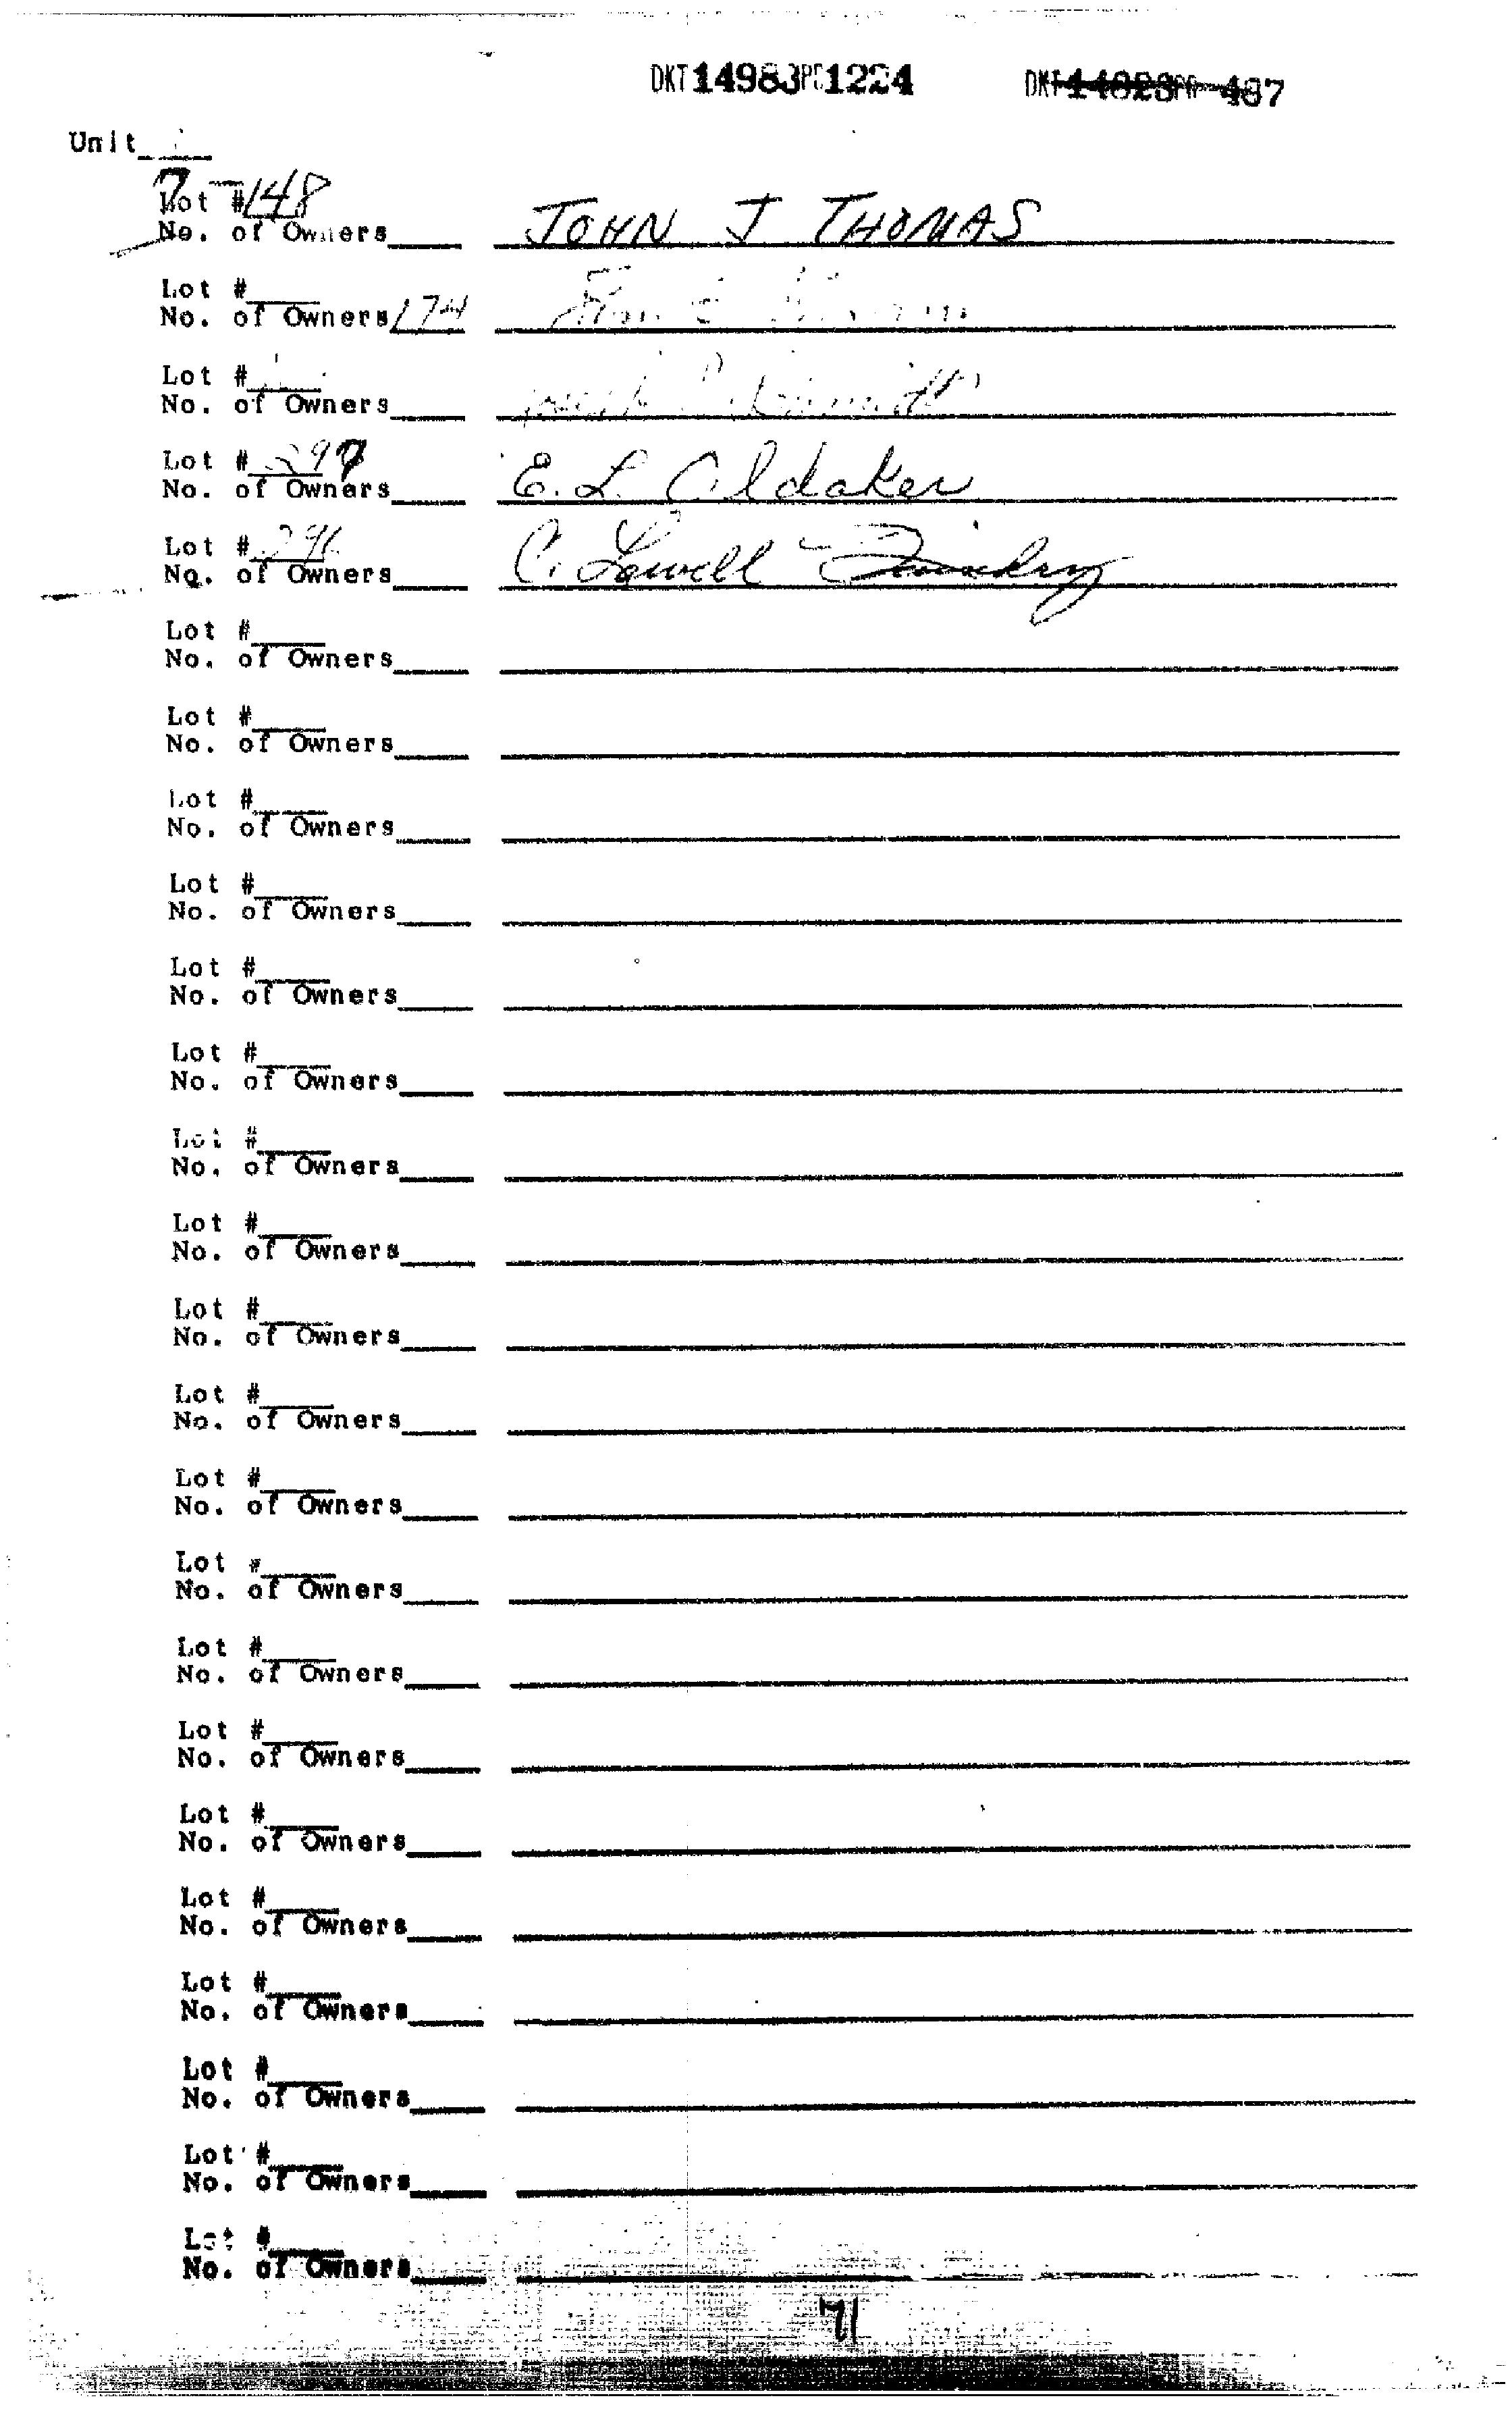 DKT 14983 PG 1224 DKT 14823 PG 487
Unit
7-148
Lot #
No. of Owners JOHN J THOMAS
Lot #
No. of Owners 174
Lot #
No. of Owners
Lot # 297
No. of Owners E. L. Oldaker
Lot # 296
No. of Owners C. Lowell
Lot #
No. of Owners
Lot #
No. of Owners
Lot #
No. of Owners
Lot #
No. of Owners
Lot #
No. of Owners
Lot #
No. of Owners
Lot #
No. of Owners
Lot #
No. of Owners
Lot #
No. of Owners
Lot #
No. of Owners
Lot #
No. of Owners
Lot #
No. of Owners
Lot #
No. of Owners
Lot #
No. of Owners
Lot #
No. of Owners
Lot #
No. of Owners
Lot #
No. of Owners
Lot #
No. of Owners
Lot #
No. of Owners
Lot #
No. of Owners
71